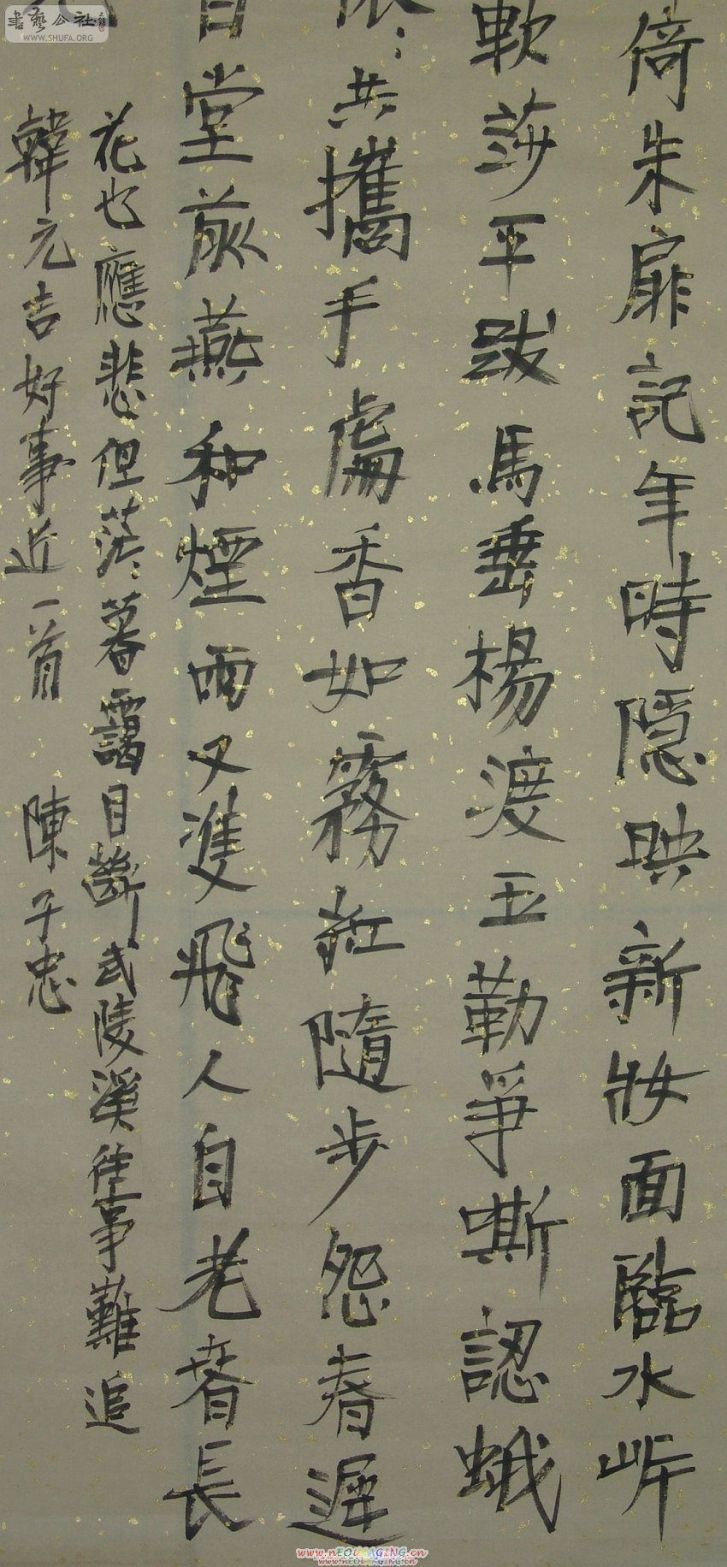 倚朱扉記年時隱映新妝面臨水岸
軟莎平跋馬垂楊渡玉勒爭嘶認蛾
依〻共攜手處香如霧紅隨步怨春遲
日堂前燕和煙雨又雙飛人自老春長
花也應悲但茫〻暮靄目斷武陵溪往事難追
韓元吉好事近一首 陳子忠
書藝公社
WWW.SHUFA.ORG
www.nEOIMAGING.cn